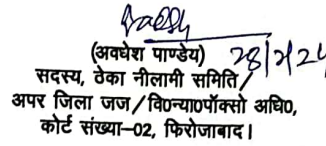 (अवधेश पाण्डेय) 28/2/24
सदस्य, ठेका नीलामी समिति/
अपर जिला जज/वि0न्या0पॉक्सो अधि0,
कोर्ट संख्या–02, फिरोजाबाद।